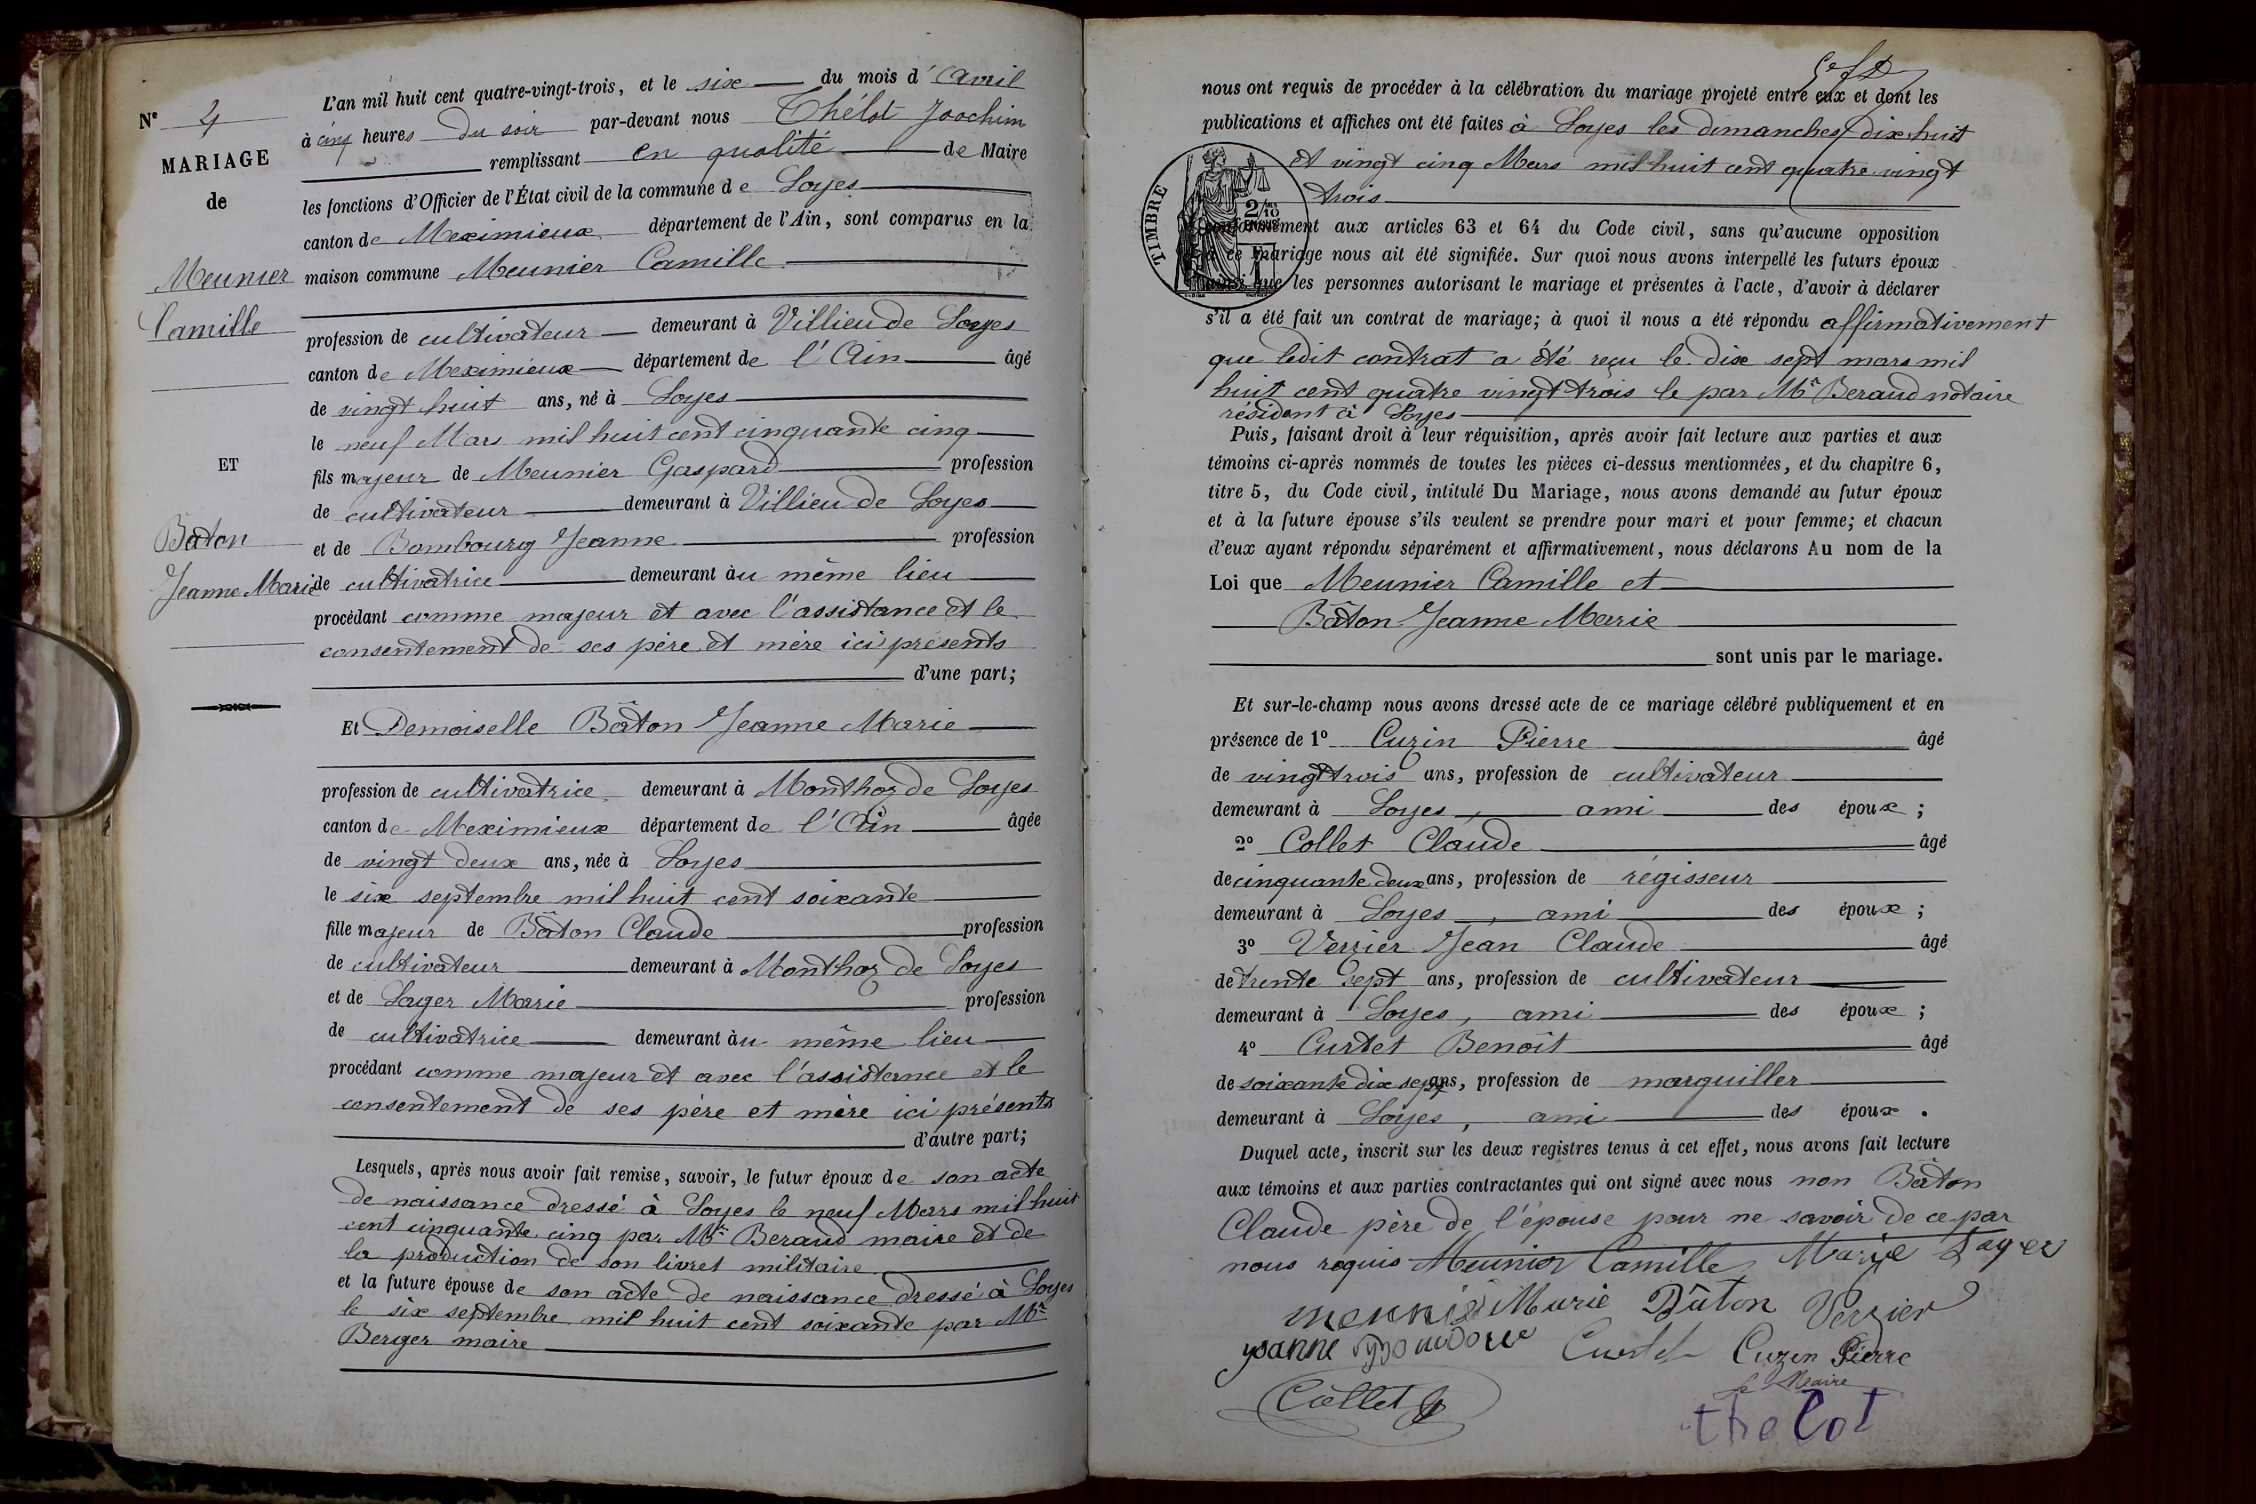 N° 4
MARIAGE
de
Meunier
Camille
ET
Bâton
Jeanne Marie
L'an mil huit cent quatre-vingt-trois, et le six du mois d'Avril
à cinq heures du soir par-devant nous Thélot Joachim
remplissant en qualité de Maire
les fonctions d'Officier de l'État civil de la commune de Loyes
canton de Meximieux département de l'Ain, sont comparus en la
maison commune Meunier Camille
profession de cultivateur demeurant à Villieu de Loyes
canton de Meximieux département de l'Ain âgé
de vingt huit ans, né à Loyes
le neuf Mars mil huit cent cinquante cinq
fils majeur de Meunier Gaspard profession
de cultivateur demeurant à Villieu de Loyes
et de Bombourg Jeanne profession
de cultivatrice demeurant àu même lieu
procédant comme majeur et avec l'assistance et le
consentement de ses père et mère ici présents
d'une part;
Et Demoiselle Bâton Jeanne Marie
profession de cultivatrice demeurant à Monthoz de Loyes
canton de Meximieux département de l'Ain âgée
de vingt deux ans, née à Loyes
le six septembre mil huit cent soixante
fille majeur de Bâton Claude profession
de cultivateur demeurant à Monthoz de Loyes
et de Lager Marie profession
de cultivatrice demeurant àu même lieu
procédant comme majeur et avec l'assistance et le
consentement de ses père et mère ici présents
d'autre part;
Lesquels, après nous avoir fait remise, savoir, le futur époux de son acte
de naissance dressé à Loyes le neuf Mars mil huit
cent cinquante cinq par Mr Beraud maire et de
la production de son livret militaire
et la future épouse de son acte de naissance dressé à Loyes
le six septembre mil huit cent soixante par Mr
Berger maire
nous ont requis de procéder à la célébration du mariage projeté entre eux et dont les
publications et affiches ont été faites à Loyes les dimanches dix huit
et vingt cinq Mars mil huit cent quatre vingt
trois
TIMBRE
conformément aux articles 63 et 64 du Code civil, sans qu'aucune opposition
à ce mariage nous ait été signifiée. Sur quoi nous avons interpellé les futurs époux
ainsi que les personnes autorisant le mariage et présentes à l'acte, d'avoir à déclarer
s'il a été fait un contrat de mariage; à quoi il nous a été répondu affirmativement
que ledit contrat a été reçu le dix sept mars mil
huit cent quatre vingt trois le par Mr Beraud notaire
résidant à Loyes
Puis, faisant droit à leur réquisition, après avoir fait lecture aux parties et aux
témoins ci-après nommés de toutes les pièces ci-dessus mentionnées, et du chapitre 6,
titre 5, du Code civil, intitulé Du Mariage, nous avons demandé au futur époux
et à la future épouse s'ils veulent se prendre pour mari et pour femme; et chacun
d'eux ayant répondu séparément et affirmativement, nous déclarons Au nom de la
Loi que Meunier Camille et
Bâton Jeanne Marie
sont unis par le mariage.
Et sur-le-champ nous avons dressé acte de ce mariage célébré publiquement et en
présence de 1° Cuzin Pierre âgé
de vingt trois ans, profession de cultivateur
demeurant à Loyes, ami des époux;
2° Collet Claude âgé
de cinquante deux ans, profession de régisseur
demeurant à Loyes, ami des époux;
3° Verzier Jean Claude âgé
de trente sept ans, profession de cultivateur
demeurant à Loyes, ami des époux;
4° Curtet Benoît âgé
de soixante dix sept ans, profession de marguiller
demeurant à Loyes, ami des époux.
Duquel acte, inscrit sur les deux registres tenus à cet effet, nous avons fait lecture
aux témoins et aux parties contractantes qui ont signé avec nous non Bâton
Claude père de l'épouse pour ne savoir de ce par
nous requis Meunier Camille Marie Lager
Marie Bâton Verzier
Curtet Cuzin Pierre
Collet
Le Maire
thelot